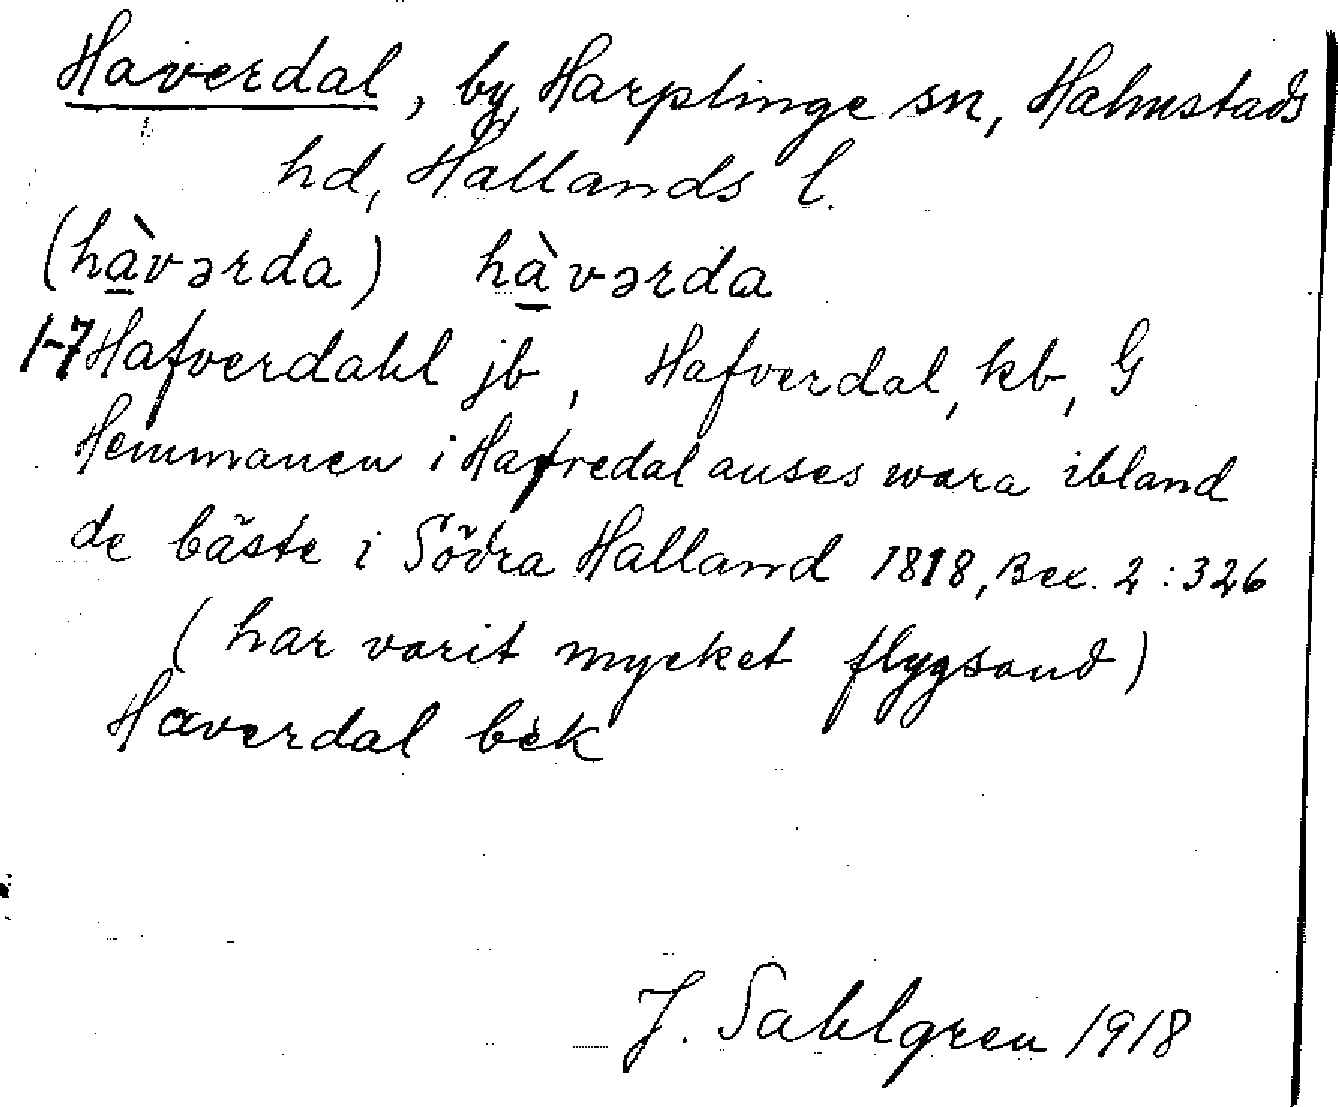 Haverdal, by, Harplinge sn, Halmstads
hd, Hallands l.
(hàvərda) hàvərda
1-7 Hafverdahl jb, Hafverdal, kb, G
Hemmanen i Hafredal anses wara ibland
de bäste i Södra Halland 1818, Bex. 2:326
(har varit mycket flygsand)
Haverdal bèk
J. Sahlgren 1918